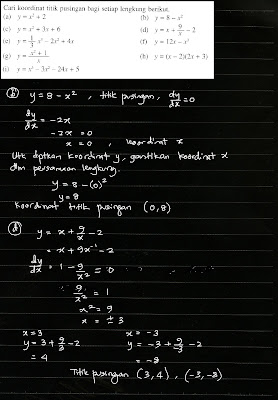 Cari koordinat titik pusingan bagi setiap lengkung berikut.
(a) y = x² + 2 (b) y = 8 – x²
(c) y = x² + 3x + 6 (d) y = x + 9/x – 2
(e) y = 1/3 x³ – 2x² + 4x (f) y = 12x – x³
(g) y = (x² + 1)/x (h) y = (x – 2)(2x + 3)
(i) y = x³ – 3x² – 24x + 5
(b) y = 8 - x² , titik pusingan, dy/dx = 0
dy/dx = -2x
-2x = 0
x = 0 , koordinat x
Utk dptkan koordinat y, gantikan koordinat x
dlm persamaan lengkung.
y = 8 - (0)²
y = 8
koordinat titik pusingan (0,8)
(d) y = x + 9/x - 2
= x + 9x⁻¹ - 2
dy/dx = 1 - 9/x² = 0
9/x² = 1
x² = 9
x = ± 3
x = 3 x = -3
y = 3 + 9/3 - 2 y = -3 + 9/-3 - 2
= 4 = -8
Titik pusingan (3,4) , (-3,-8)